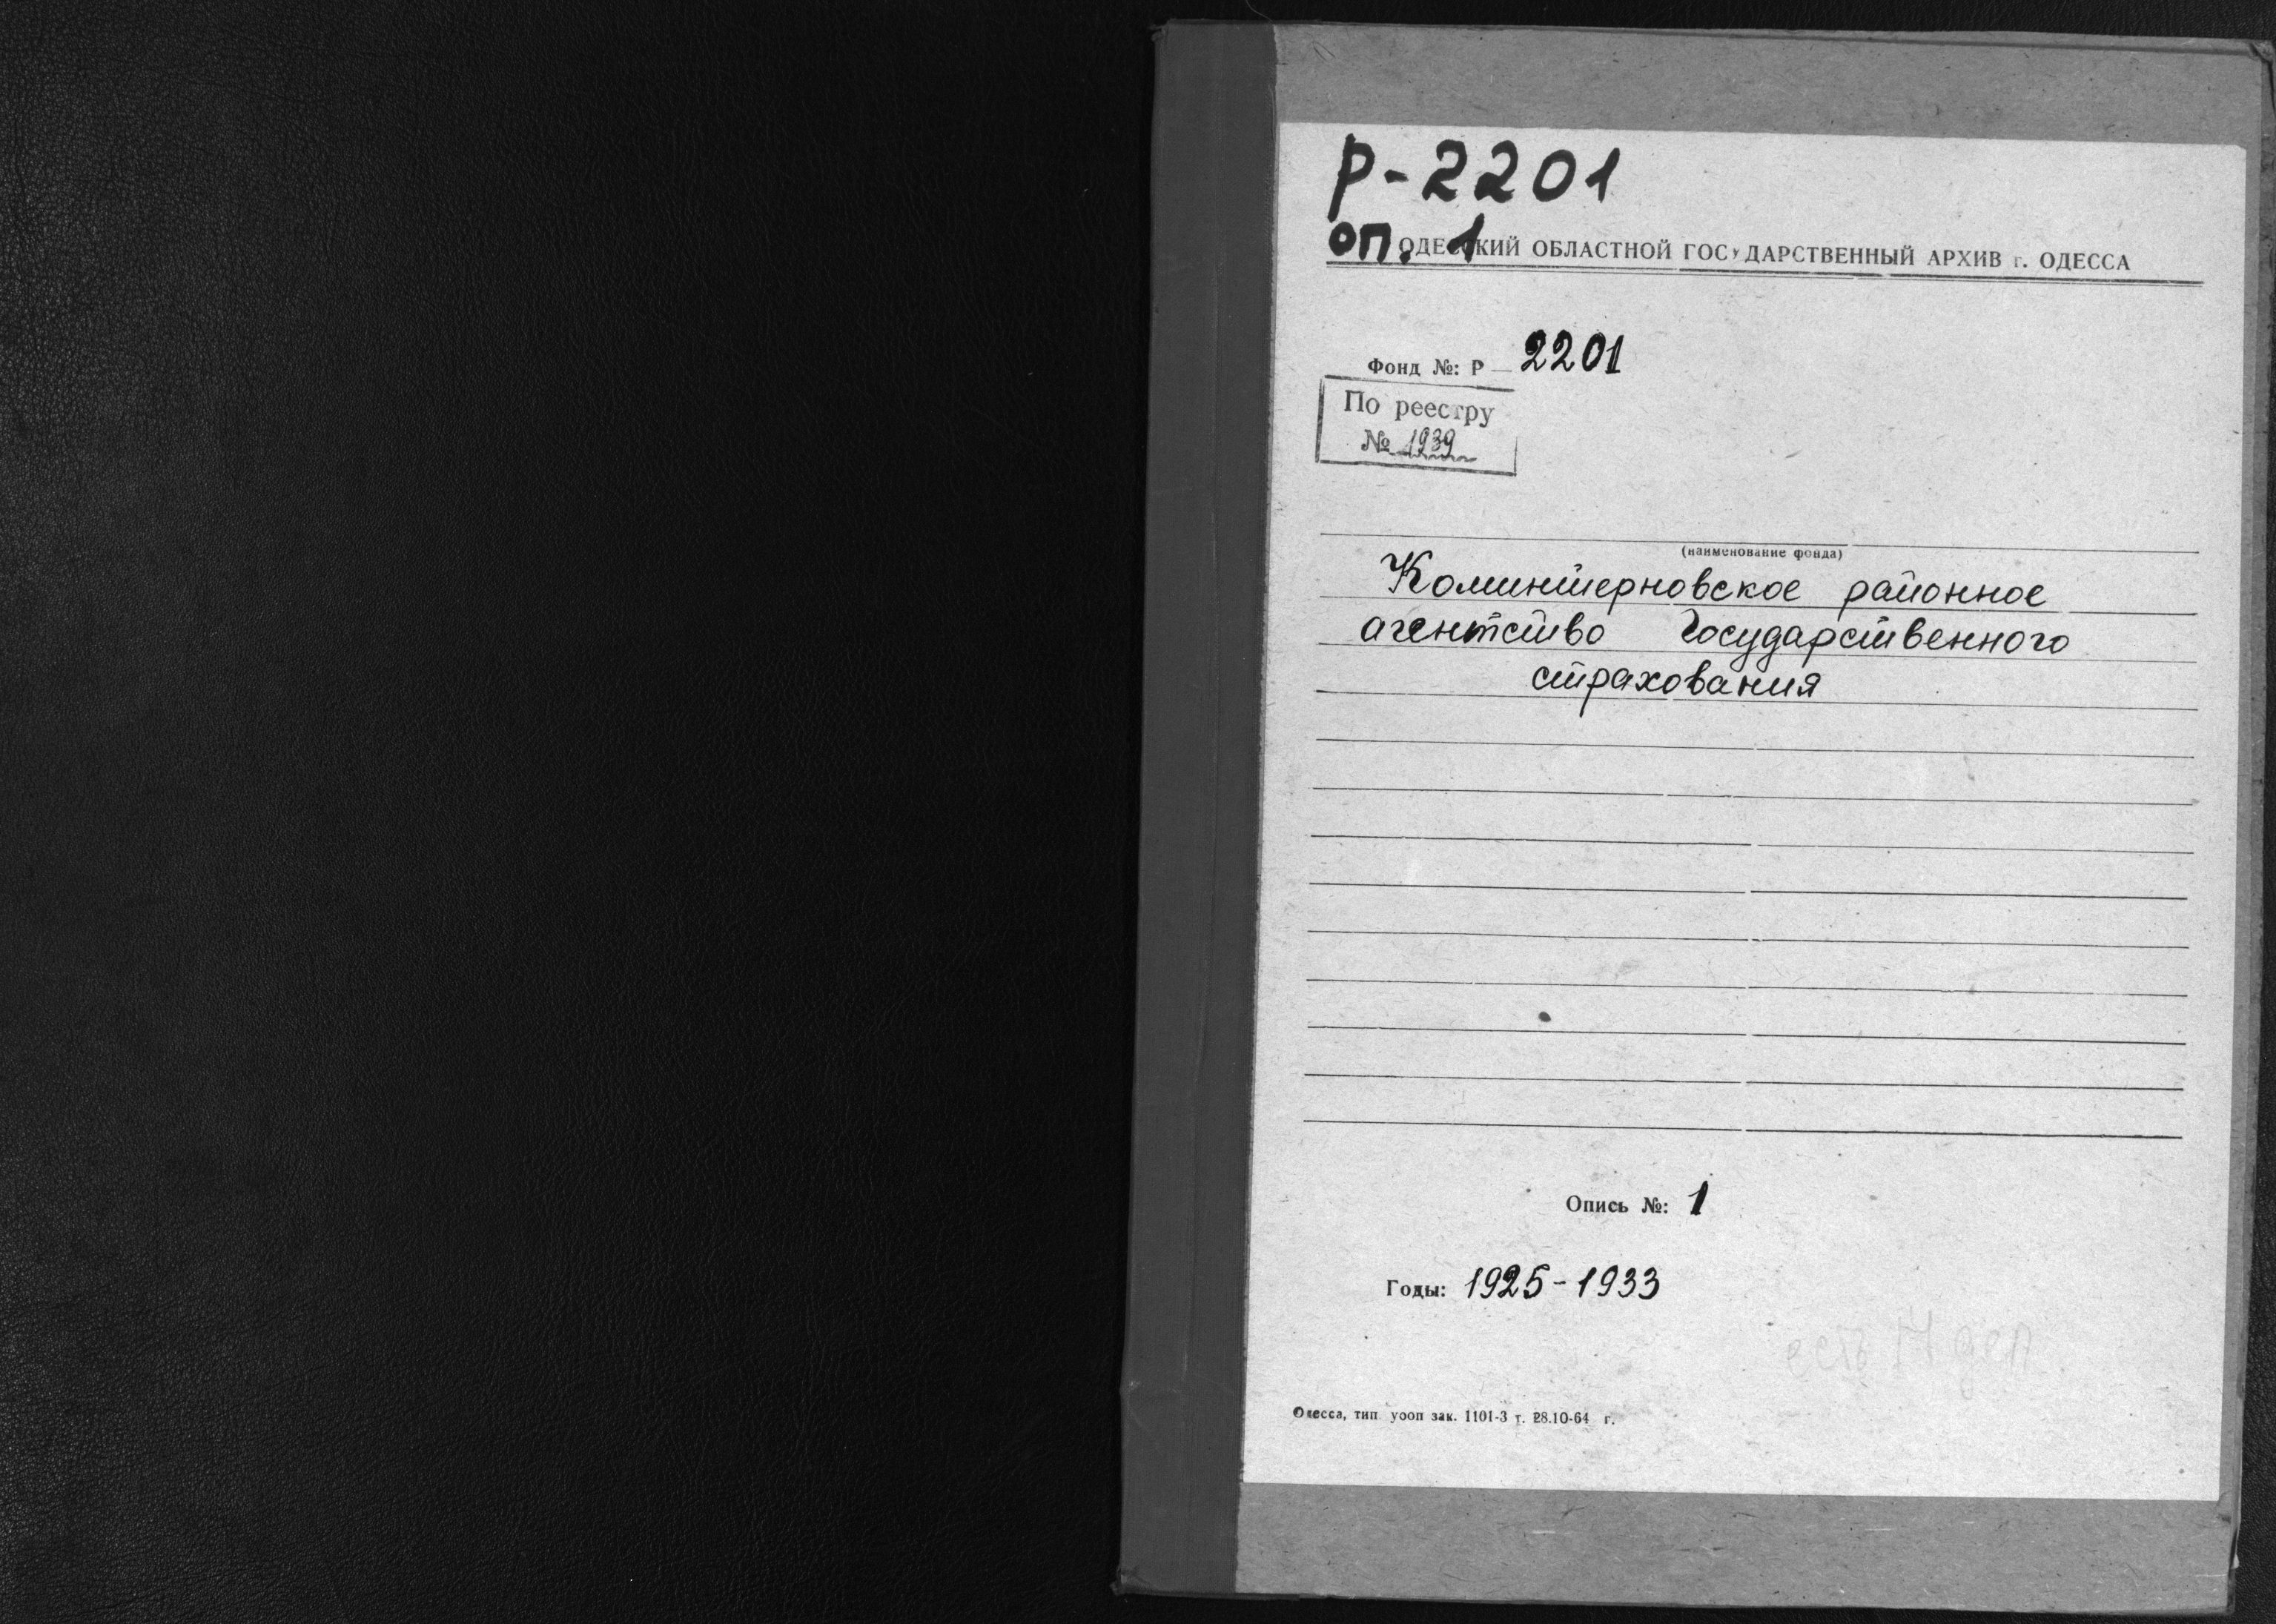 Р-2201
оп. 1
ОДЕССКИЙ ОБЛАСТНОЙ ГОСУДАРСТВЕННЫЙ АРХИВ г. ОДЕССА
Фонд №: Р — 2201
По реестру
№ 1939
(наименование фонда)
Коминтерновское районное
агентство Государственного
страхования
Опись №: 1
Годы: 1925-1933
есть дел
Одесса, тип. уооп зак. 1101-3 т. 28.10-64 г.